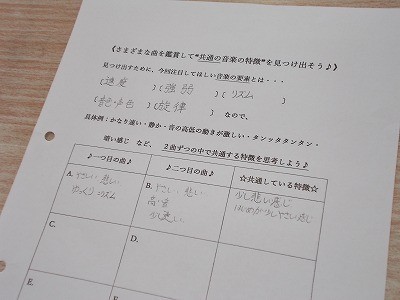 《さまざまな曲を鑑賞して"共通の音楽の特徴"を見つけ出そう♪》
見つけ出すために、今回注目してほしい音楽の要素とは・・・
(速度)(強弱)(リズム)
(音色)(旋律)なので、
具体例：かなり速い・静か・音の高低の動きが激しい・タンッタタンタン・
暗い感じ など、2曲ずつの中で共通する特徴を思考しよう♪
♪一つ目の曲♪ ♪二つ目の曲♪ ☆共通している特徴☆
A. やさしい 悲しい
ゆっくり リズム
B. やさしい 悲しい
高い音
少し悲しい感じ
C. D.
E. F.